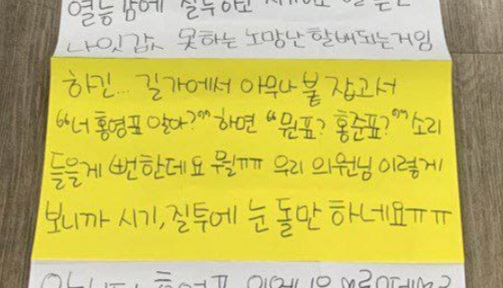 열등감에 질투
나잇값 못하는 노망난 할배되는거임
하긴... 길가에서 아무나 붙잡고서
"너 홍영표 알아?" 하면 "뭔표? 홍준표?" 소리
들을게 뻔한데요 뭘ㅠㅠ 우리 의원님 이렇게
보니까 시기,질투에 눈 돌만 하네요ㅠㅠ